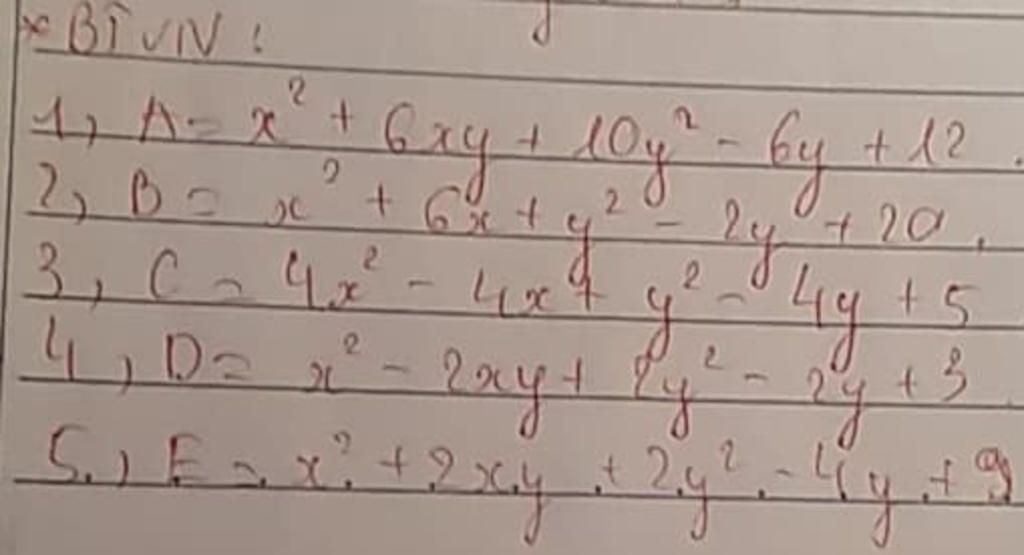 * BTVN :
1, A = x² + 6xy + 10y² - 6y + 12.
2, B = x² + 6x + y² - 2y + 20.
3, C = 4x² - 4x + y² - 4y + 5
4, D = x² - 2xy + 2y² - 2y + 3
5, E = x² + 2xy + 2y² - 4y + 9